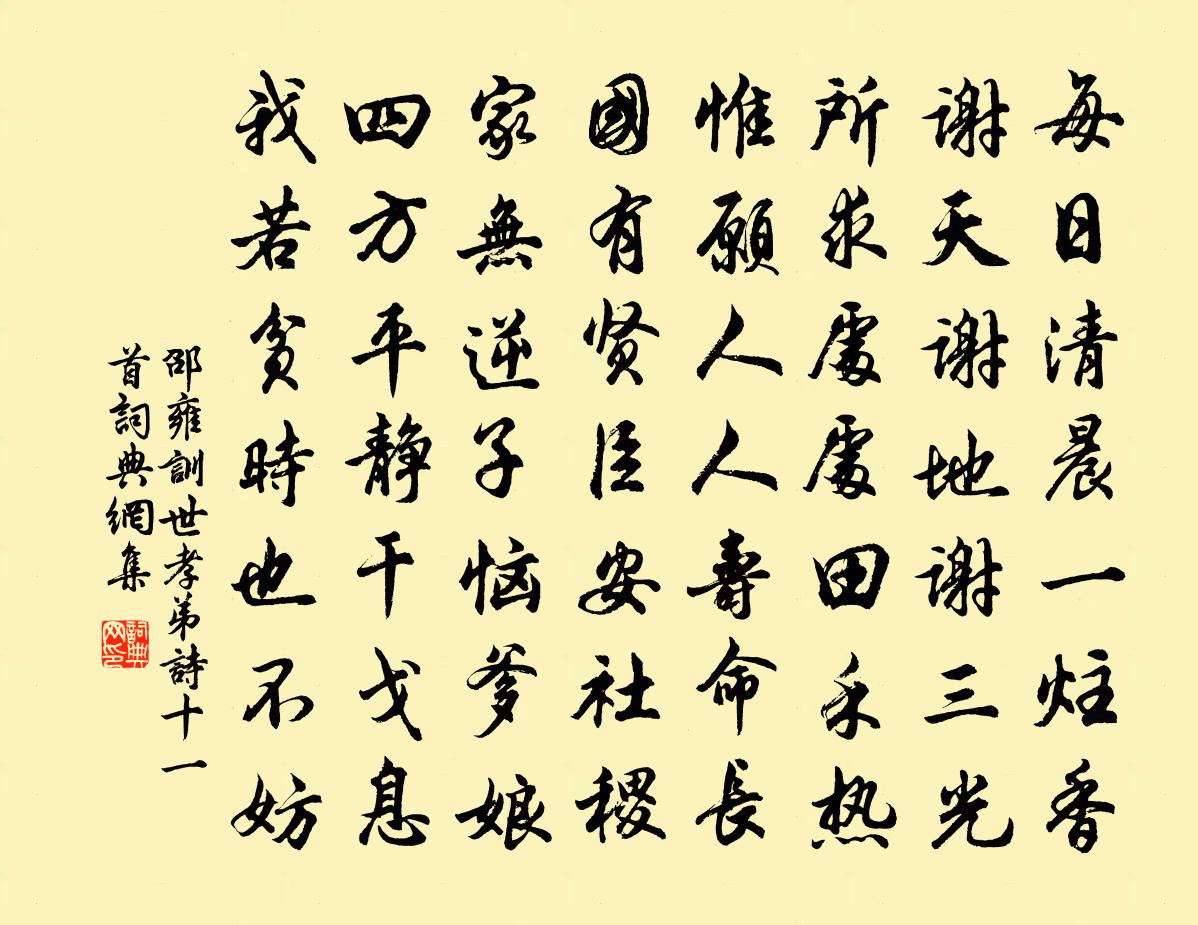 每日清晨一炷香
謝天謝地謝三光
所求處處田禾热
惟願人人壽命長
國有贤臣安社稷
家無逆子恼爹娘
四方平静干戈息
我若贫時也不妨
邵雍訓世孝弟詩十一
首詞典網集
詞典
网印